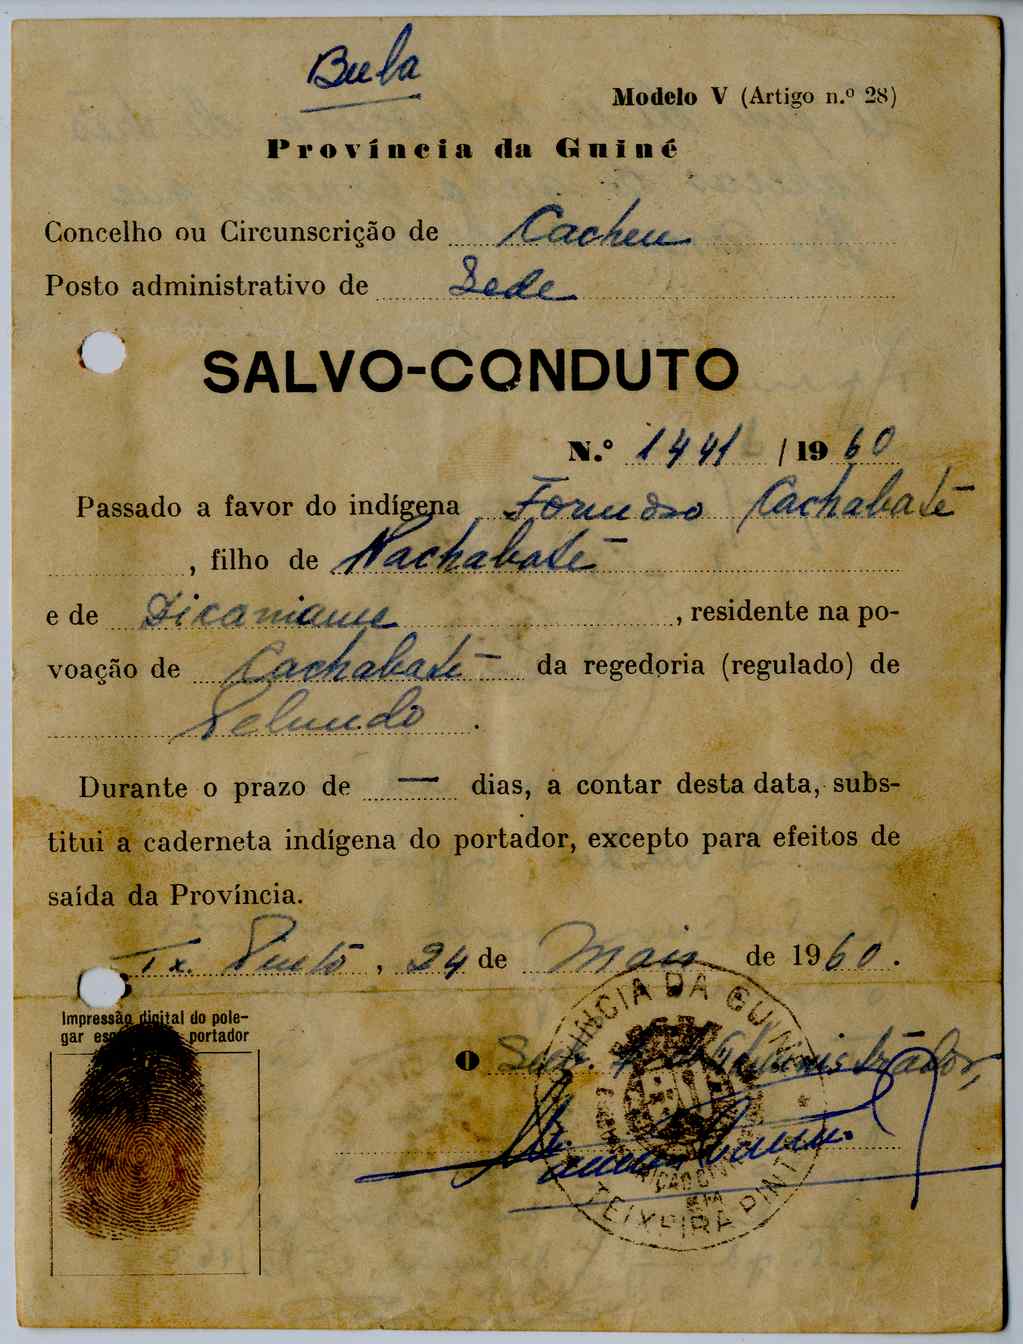 Bula
Modelo V (Artigo n.º 28)
Província da Guiné
Concelho ou Circunscrição de Cacheu
Posto administrativo de Sede
SALVO-CONDUTO
N.º 1441 / 1960
Passado a favor do indígena Formoso Cachabaté
, filho de Nachabaté
e de Dicaniame, residente na po-
voação de Cachabaté da regedoria (regulado) de
Pelundo.
Durante o prazo de — dias, a contar desta data, subs-
titui a caderneta indígena do portador, excepto para efeitos de
saída da Província.
Tx. Pinto, 24 de Maio de 1960.
PROVÍNCIA DA GUINÉ
Impressão digital do pole-
gar portador
O Administrador,
TEIXEIRA PINTO